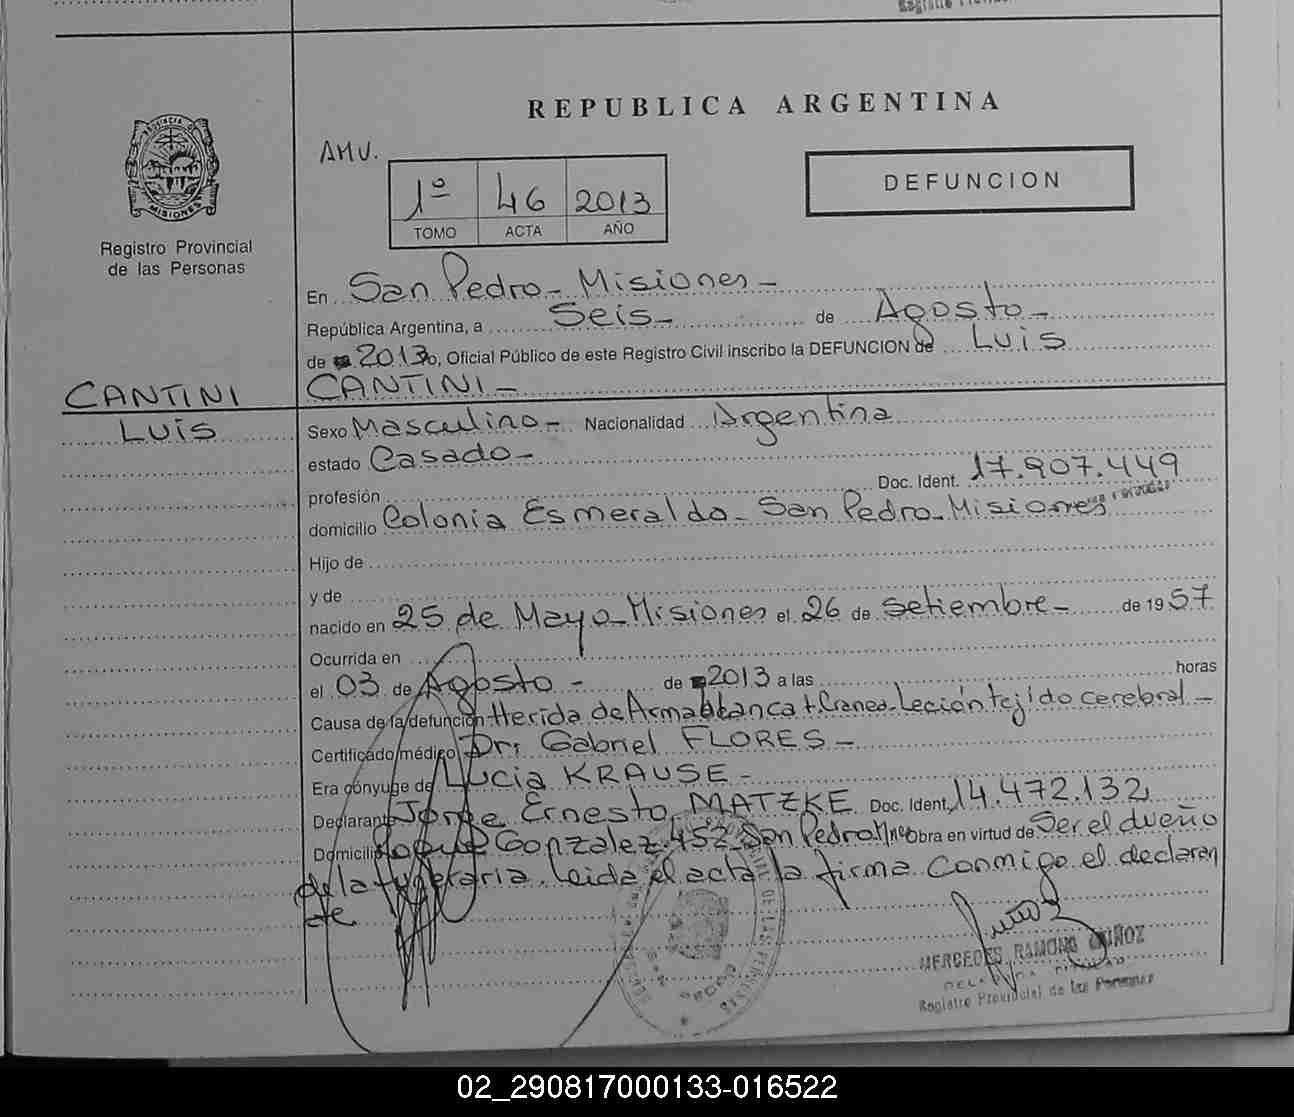 REPUBLICA ARGENTINA
AMU.
1º 46 2013
TOMO ACTA AÑO
DEFUNCION
PROVINCIA DE MISIONES
Registro Provincial
de las Personas
En San Pedro - Misiones -
República Argentina, a Seis - de Agosto -
de 2013 yo, Oficial Público de este Registro Civil inscribo la DEFUNCION de Luis
CANTINI CANTINI -
Luis Sexo Masculino - Nacionalidad Argentina
estado Casado -
profesión Doc. Ident. 17.907.449
domicilio Colonia Esmeralda - San Pedro - Misiones
Hijo de
y de
nacido en 25 de Mayo - Misiones el 26 de Setiembre - de 1957
Ocurrida en
el 03 de Agosto - de 2013 a las horas
Causa de la defunción Herida de Arma blanca t. Cranea - Leción tejido cerebral -
Certificado médico Dr: Gabriel FLORES -
Era cónyuge de Lucia KRAUSE -
Declarante Jorge Ernesto MATZKE Doc. Ident. 14.472.132
Domicilio Roque Gonzalez 452 - San Pedro Mnes Obra en virtud de Ser el dueño
de la funeraria. Leida el acta la firma conmigo el declaran
te
MERCEDES RAMONA MUÑOZ
Registro Provincial de las Personas
02_290817000133-016522